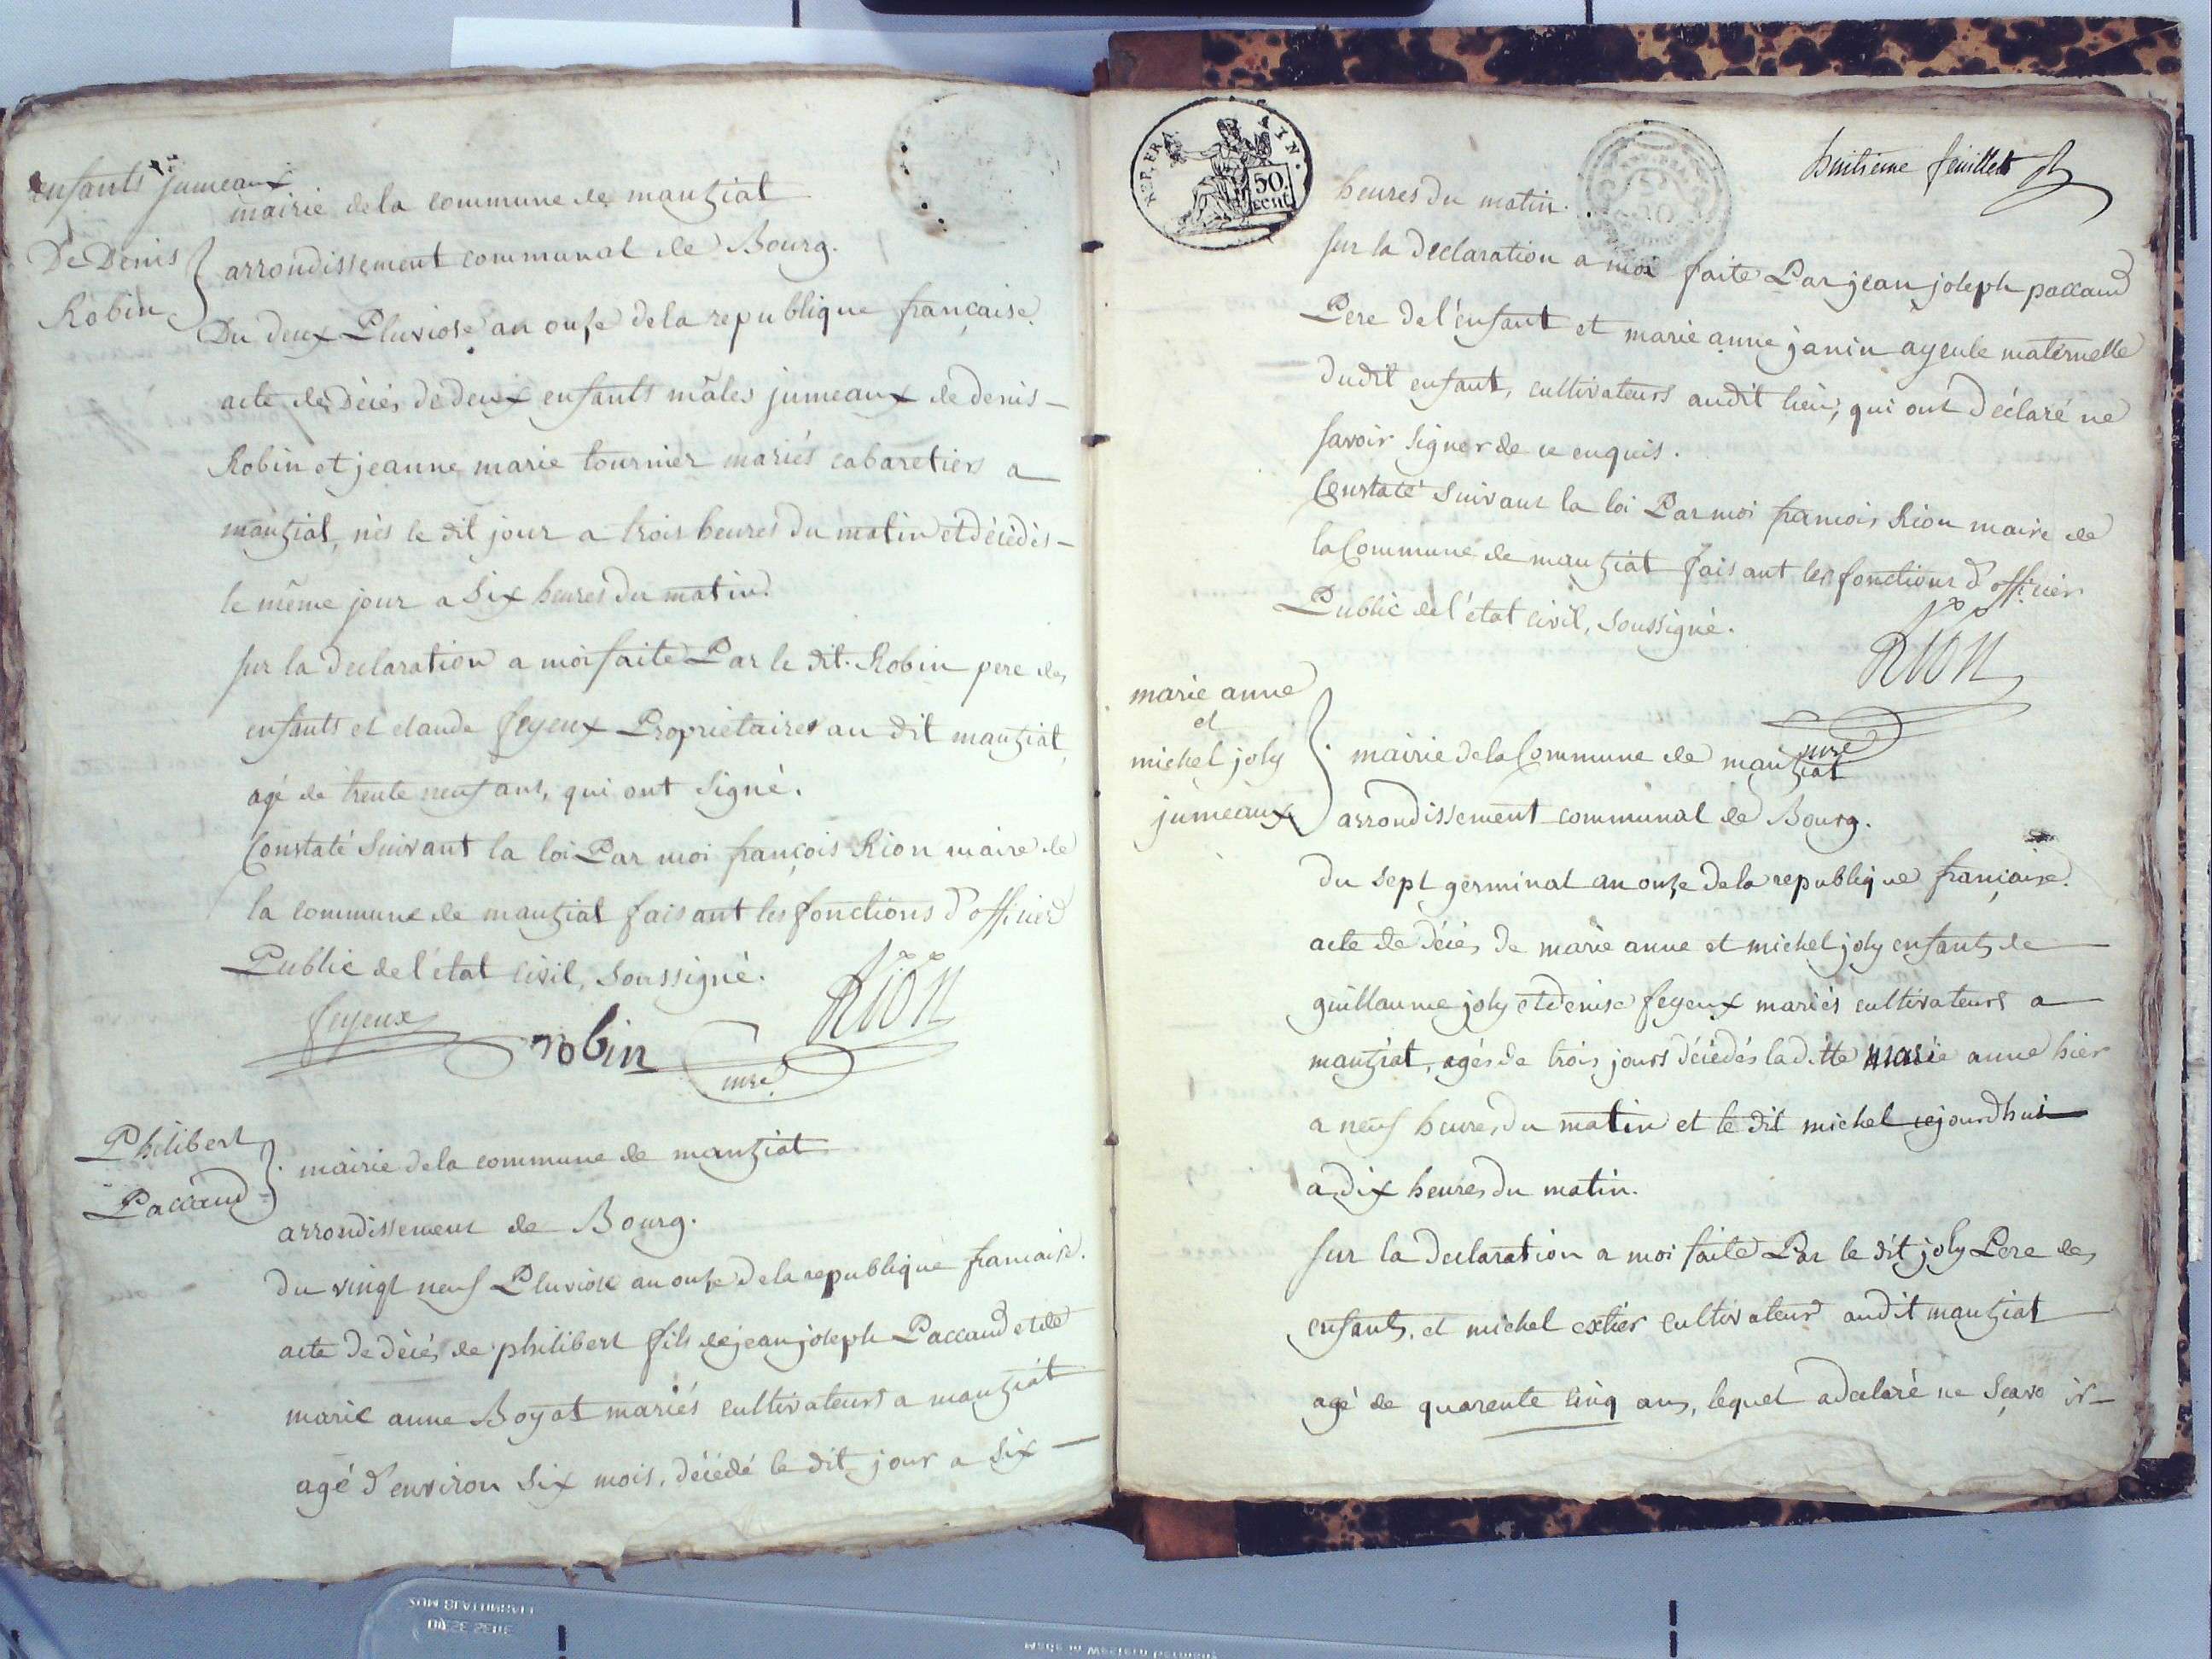 enfants jumeaux
De Denis
Robin
mairie dela commune de mantziat
arrondissement communal de Bourg.
Du deux Pluviose an onze dela republique française.
acte de décés de deux enfants mâles jumeaux de denis
Robin et jeanne marie tournier mariés cabaretiers a
mantziat, nés le dit jour a trois heures du matin et décédés
le même jour a six heures du matin.
sur la declaration a moi faite Par le dit Robin pere des
enfants et claude feyeux Propriétaires au dit mantziat,
agé de trente neuf ans, qui ont signé.
Constaté suivant la loi Par moi françois Rion maire de
la commune de mantziat faisant les fonctions d'officier
Public de l'état civil, soussigné.
feyeux
robin
Rion
mre
Philibert
Paccaud
mairie dela commune de mantziat
arrondissement de Bourg.
du vingt neuf Pluviose an onze dela republique francaise.
acte de décés de philibert fils de jean joseph Paccaud et de
marie anne Boyat mariés cultivateurs a mantziat
agé d'environ six mois, décédé le dit jour a six
REP. FRA.
50.
cent
huitieme feuillet
heures du matin.
sur la declaration a moi faite Par jean joseph paccaud
Pere de l'enfant et marie anne janin ayeule maternelle
dudit enfant, cultivateurs audit lieu, qui ont déclaré ne
savoir signer de ce enquis.
Constaté suivant la loi Par moi francois Rion maire de
la Commune de mantziat faisant les fonctions d'officier
Public de l'état civil, soussigné.
Rion
mre
marie anne
et
michel joly
jumeaux
mairie dela Commune de mantziat
arrondissement communal de Bourg.
du sept germinal an onze dela republique française.
acte de décés de marie anne et michel joly enfants de
guillaume joly et denise feyeux mariés cultivateurs a
mantziat, agés de trois jours décédés ladite marie anne hier
a neuf heures du matin et le dit michel cejourdhui
a dix heures du matin.
sur la declaration a moi faite Par le dit joly Pere des
enfants, et michel extier cultivateur audit mantziat
agé de quarente cinq ans, lequel a declaré ne sçavoir